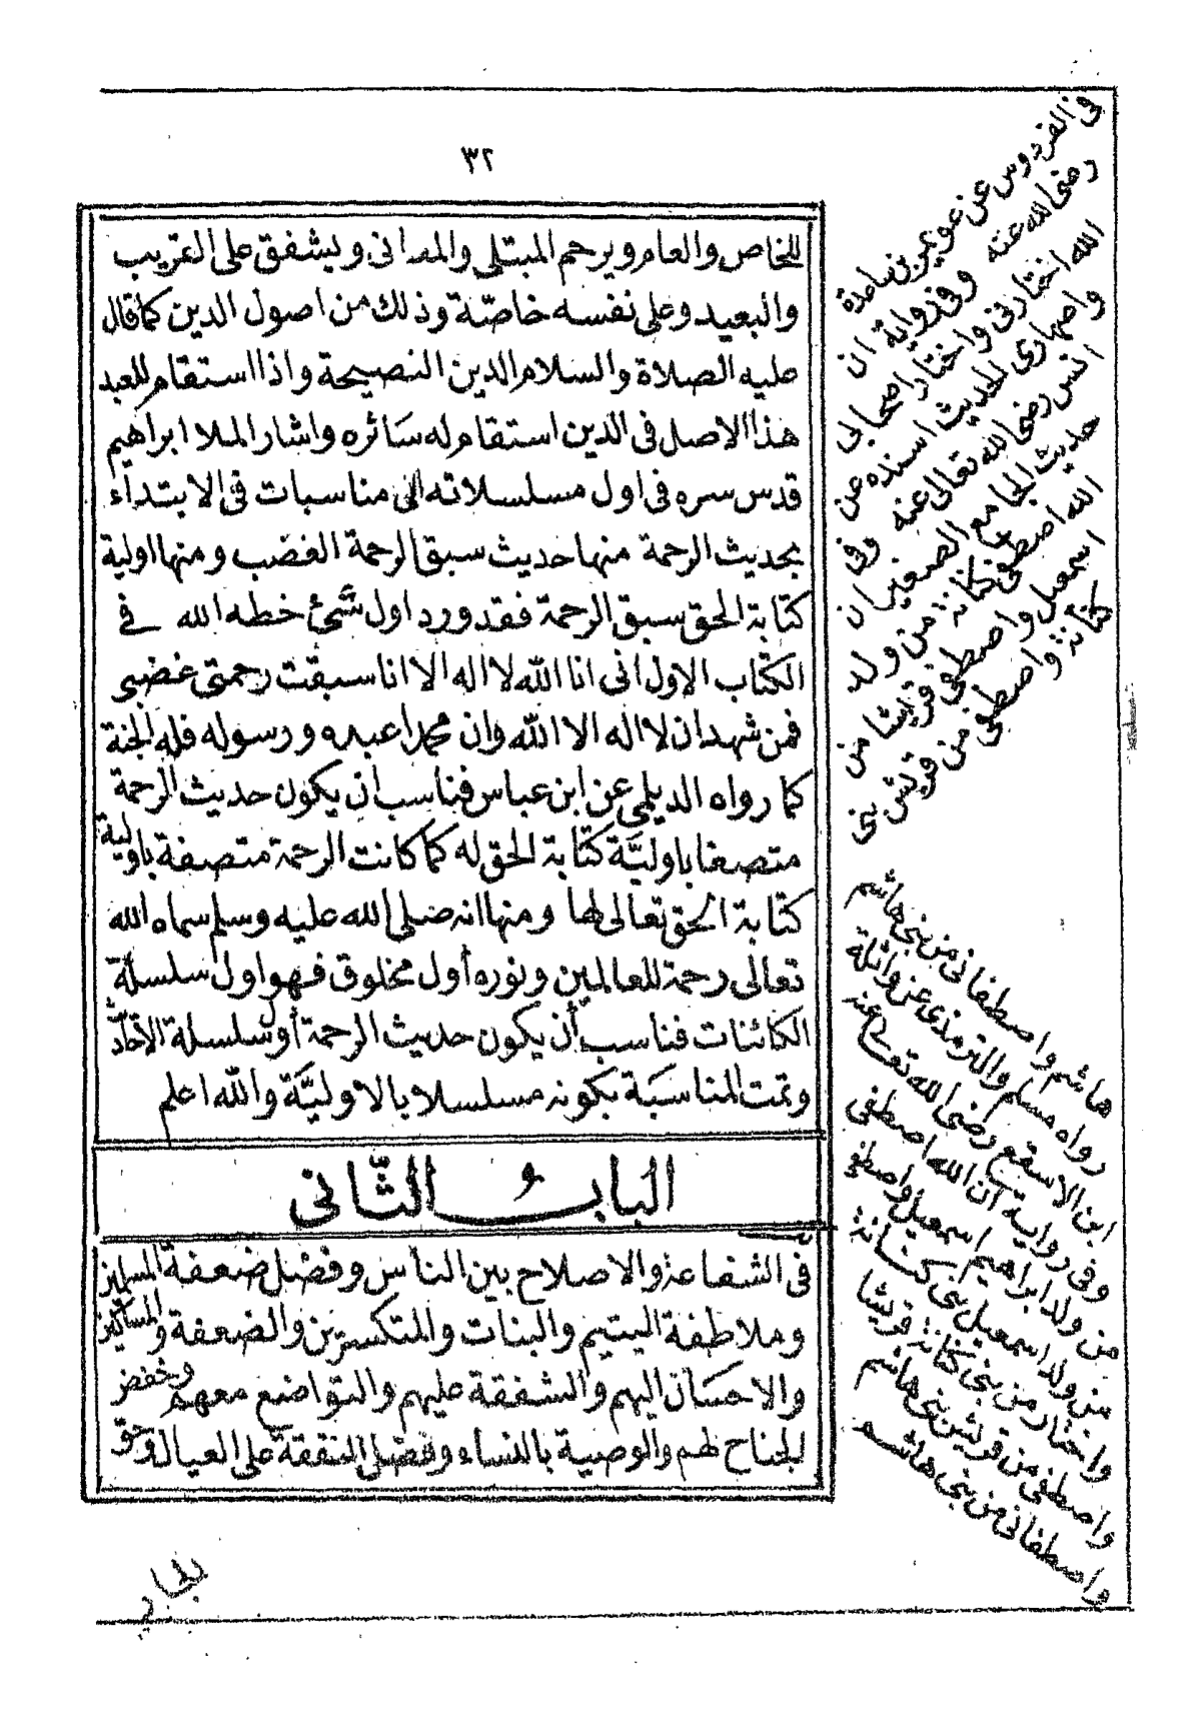 ٣٢
للخاص والعام ويرحم المبتلي والمدانى ويشفق على القريب
والبعيد وعلى نفسه خاصّة وذلك من اصول الدين كما قال
عليه الصلاة والسلام الدين النصيحة واذا استقام للعبد
هذا الاصل فى الدين استقام له سائره واشار الملا ابراهيم
قدس سره فى اول مسلسلاته الى مناسبات فى الابتداء
بحديث الرحمة منها حديث سبق الرحمة الغضب ومنها اولية
كتابة الحق سبق الرحمة فقد ورد اول شئ خطه الله في
الكتاب الاول انى انا الله لا اله الا انا سبقت رحمتى غضبى
فمن شهد ان لا اله الا الله وان محمدا عبده ورسوله فله الجنة
كما رواه الديلمى عن ابن عباس فناسب ان يكون حديث الرحمة
متصفا باوليَّة كتابة الحق له كما كانت الرحمة متصفة باولية
كتابة الحق تعالى لها ومنها انه صلى الله عليه وسلم سماه الله
تعالى رحمة للعالمين ونوره أول مخلوق فهو اول سلسلة
الكائنات فناسب أن يكون حديث الرحمة أول سلسلة
وتمت المناسبَة بكونه مسلسلا بالاوليَّة والله اعلم
البابُ الثّانى
فى الشفاعة والاصلاح بين الناس وفضل ضعفة المسلمين
وملاطفة اليتيم والبنات والمنكسرين والضعفة والمساكين
والاحسان اليهم والشفقة عليهم والتواضع معهم وخفض
الجناح لهم والوصية بالنساء وفضل النفقة على العيال وحق
فى الفردوس عن عويمر بن ساعدة
رضى الله عنه وفى رواية ان
الله اختارنى واختار اصحابى
واصهارى الحديث اسنده عن
انس رضى الله تعالى عنه وفى
حديث الجامع الصغير ان
الله اصطفى كنانة من ولد
اسمعيل واصطفى قريشا من
كنانة واصطفى من قريش بنى
هاشم واصطفانى من بنى هاشم
رواه مسلم والترمذى عن واثلة
ابن الاسقع رضى الله تعالى عنه
وفى رواية ان الله اصطفى
من ولد ابراهيم اسمعيل واصطفى
من ولد اسمعيل بنى كنانة
واختار من بنى كنانة قريشا
واصطفى من قريش بنى هاشم
واصطفانى من بنى هاشم